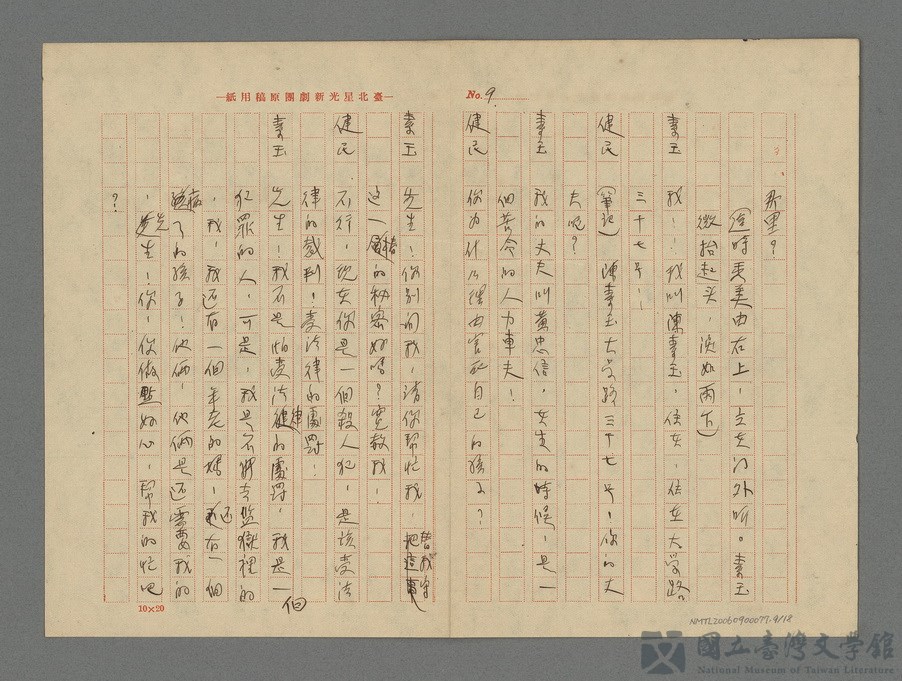 No. 9.
那里？
（這時秀美由右上，立在门外听。素玉
微抬起头，淚如雨下）
素玉 我！！我叫陳素玉，住在，住在大學路
三十七号！
健民 （筆記）陳素玉大學路三十七号，你的丈
夫呢？
素玉 我的丈夫叫黃忠信，在生的時候，是一
個苦命的人力車夫！
健民 你为什么理由害死自己的孩子？
—臺北星光新劇團原稿用紙—
素玉 先生！你别问我，请你帮忙我，替我守
这一椿的秘密好嗎？寬赦我！
健民 不行，现在你是一個殺人犯，是该受法
律的裁判！受法律的處罸！
素玉 先生！我不是怕受法律的處罸，我是一個
犯罪的人，可是，我是不能去監獄裡的
，我，我还有一個年老的媽，还有一個
病了的孩子！他俩，他俩是还需要我的
，先生！你，你做點好心，帮我的忙吧
？
10×20
NMTL20060900077.9/18
國立臺灣文學館
National Museum of Taiwan Literature